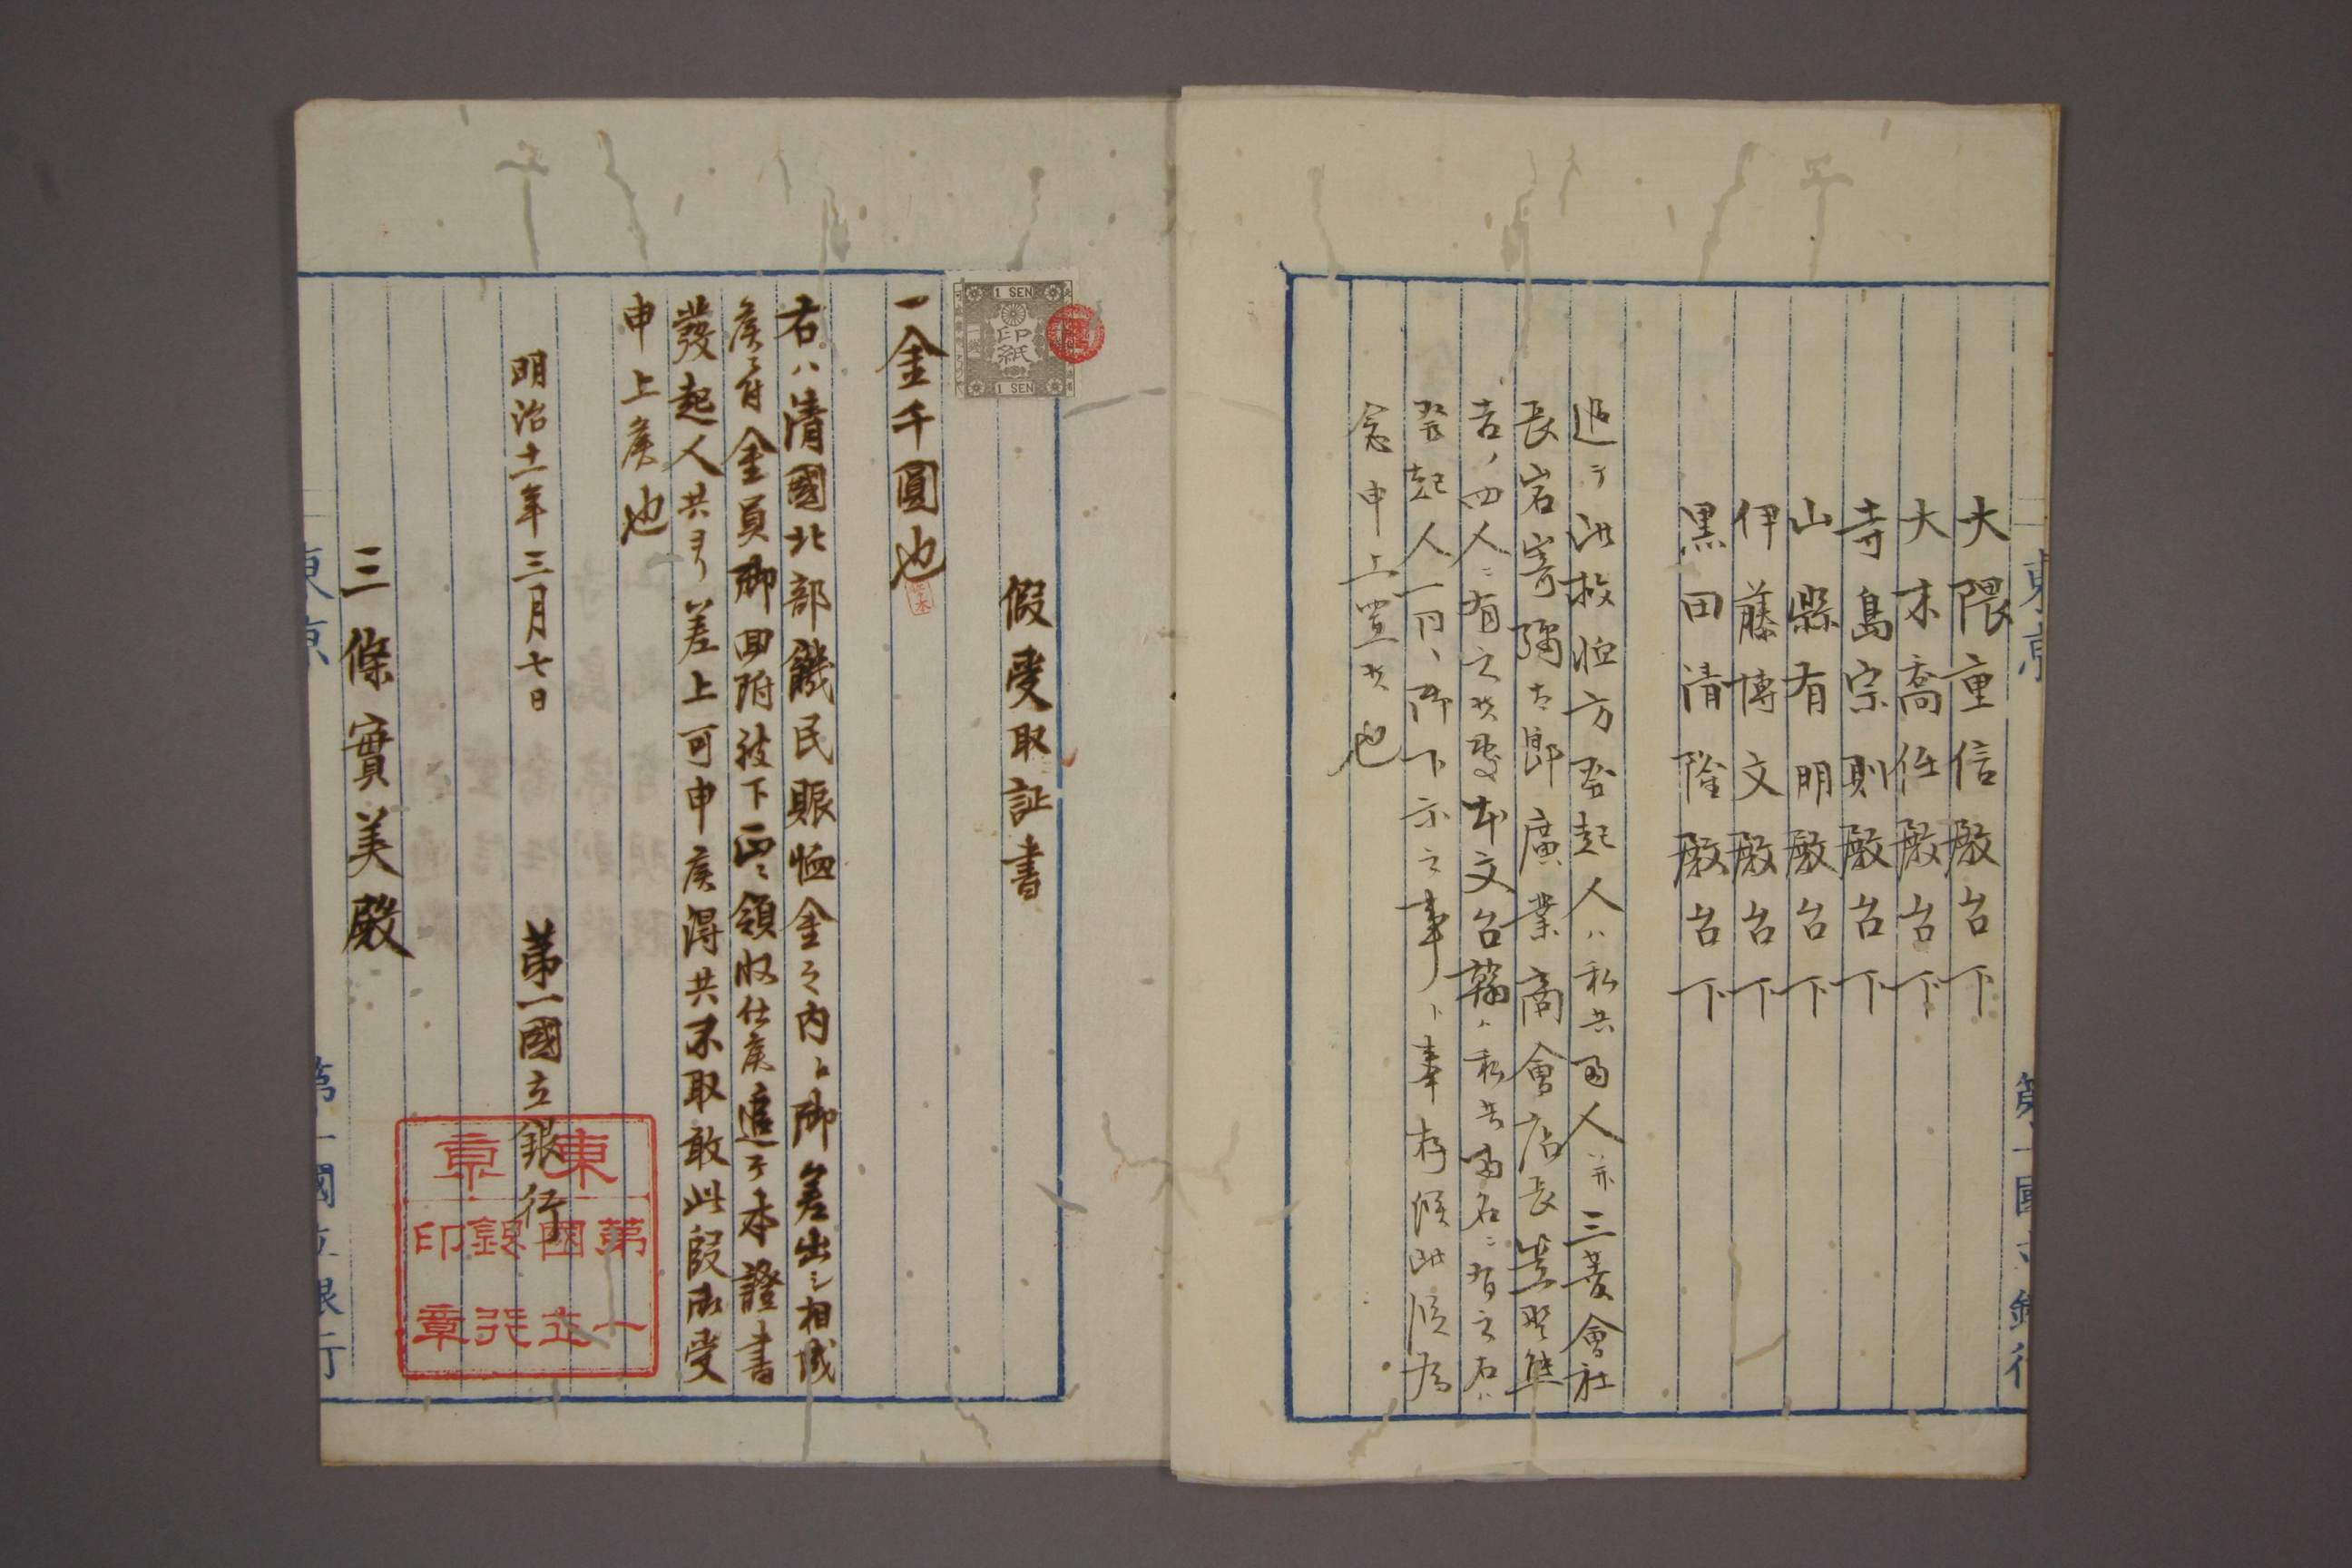 大隈重信殿台下
大木喬任殿台下
寺島宗則殿台下
山縣有朋殿台下
伊藤博文殿台下
黒田清隆殿台下
追テ洪救恤方發起人ハ私共両人并三菱會社
長岩㟢彌太郎廣業商會店長笠野熊
吉ノ四人ニ有之候處本文台翰ハ私共両名ニ有之右ハ
發起人一同ヘ御下示之事ト奉存候此段為
念申上置候也
東京
第一國立銀行
1 SEN
印紙
1 SEN
假受取証書
一金千圓也
右ハ清國北部饑民賑恤金之内ニ御差出シ相成
候ニ付金員御回附被下正ニ領收仕候追テ本證書
發起人共ヨリ差上可申候得共不取敢此段御受
申上候也
明治十一年三月七日
第一國立銀行
東京
第一國立銀行印章
三條實美殿
東京
第一國立銀行